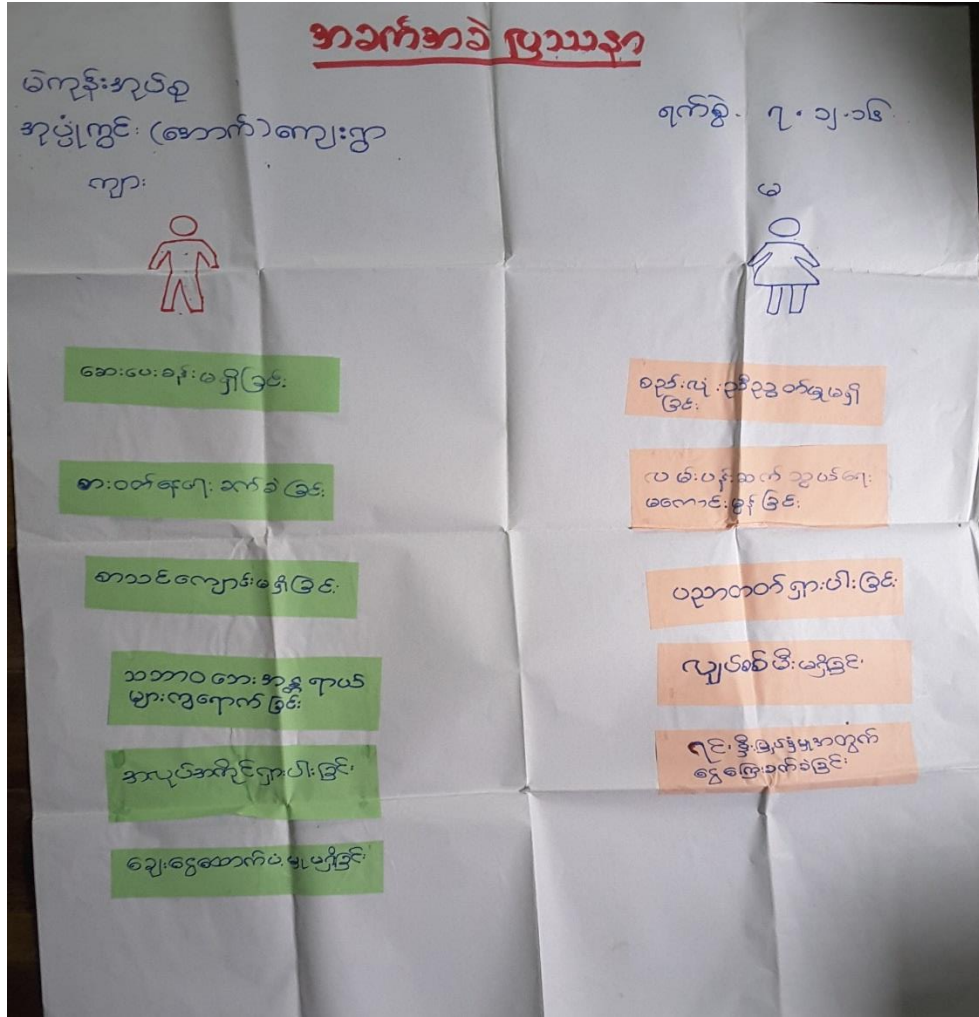 အခက်အခဲ ပြဿနာ
မဲကုန်းအုပ်စု
အုပ်ပုံကွင်း (အောက်) ကျေးရွာ
ရက်စွဲ - ၇.၁၂.၁၆
ကျား
မ
ဆေးပေးခန်းမရှိခြင်း
စားဝတ်နေရေး ခက်ခဲခြင်း
စာသင်ကျောင်းမရှိခြင်း
သဘာဝဘေးအန္တရာယ်
များကျရောက်ခြင်း
အလုပ်အကိုင်ရှားပါးခြင်း
ချေးငွေထောက်ပံ့မှုမရှိခြင်း
စည်းလုံးညီညွတ်မှုမရှိ
ခြင်း
လမ်းပန်းဆက်သွယ်ရေး
မကောင်းမွန်ခြင်း
ပညာတတ်ရှားပါးခြင်း
လျှပ်စစ်မီးမရှိခြင်း
ရင်းနှီးမြှုပ်နှံမှုအတွက်
ငွေကြေးခက်ခဲခြင်း